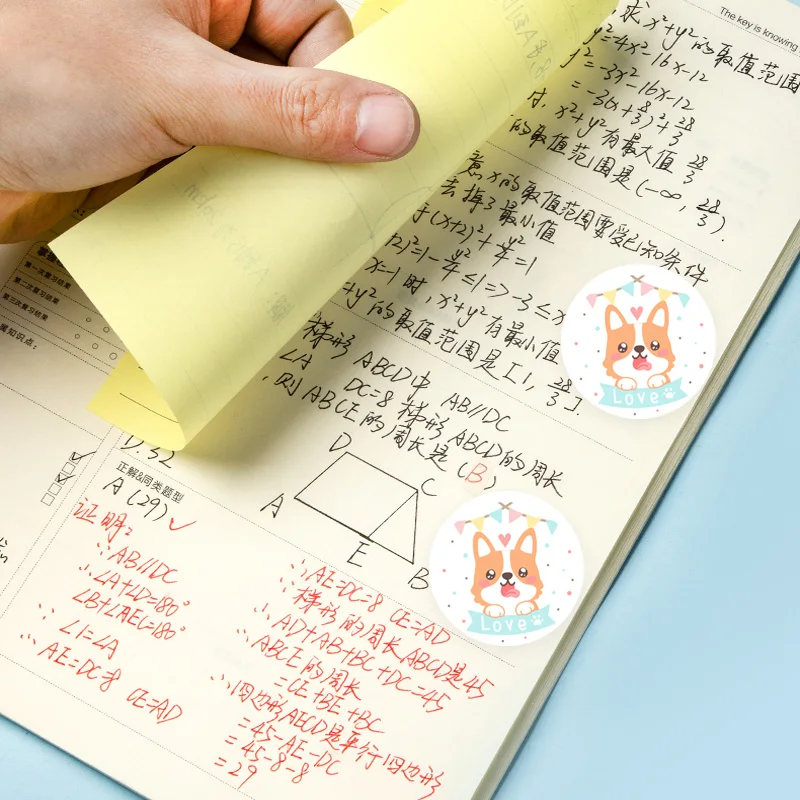 The key is knowing
求 x²+y² 的取值范围
y²=4x²-16x-12
y²=-3x²-16x-12
=-3(x+8/3)²+28/3
时, x²+y² 有最大值 28/3
的取值范围是 (-∞, 28/3).
意 x 的取值范围需要受已知条件
去掉了最小值
(x+2)²+y²/4=1
+2)²=1-y²/4≤1=>-3≤x
x=-1 时, x²+y² 有最小值
+y² 的取值范围是 [1, 28/3].
第一次复习结果
第二次复习结果
第三次复习结果
属知识点:
梯形 ABCD中 AB//DC
∠A DC=8 梯形 ABCD的周长
,则 ABCE的周长是 (B)
D.32
正解&同类题型
A (29) ✓
D
C
A
E
B
证明:
∵AB//DC
∴∠A+∠D=180°
∠B+∠AEC=180°
∵∠1=∠A
∴AE=DC=8 CE=AD
∴AE=DC=8 CE=AD
∵梯形的周长ABCD是45
∴AD+AB+BC+DC=45
∴ABCE的周长
=CE+BE+BC
∴四边形AECD是平行四边形
=45-AE-DC
=45-8-8
=29
Love
Love